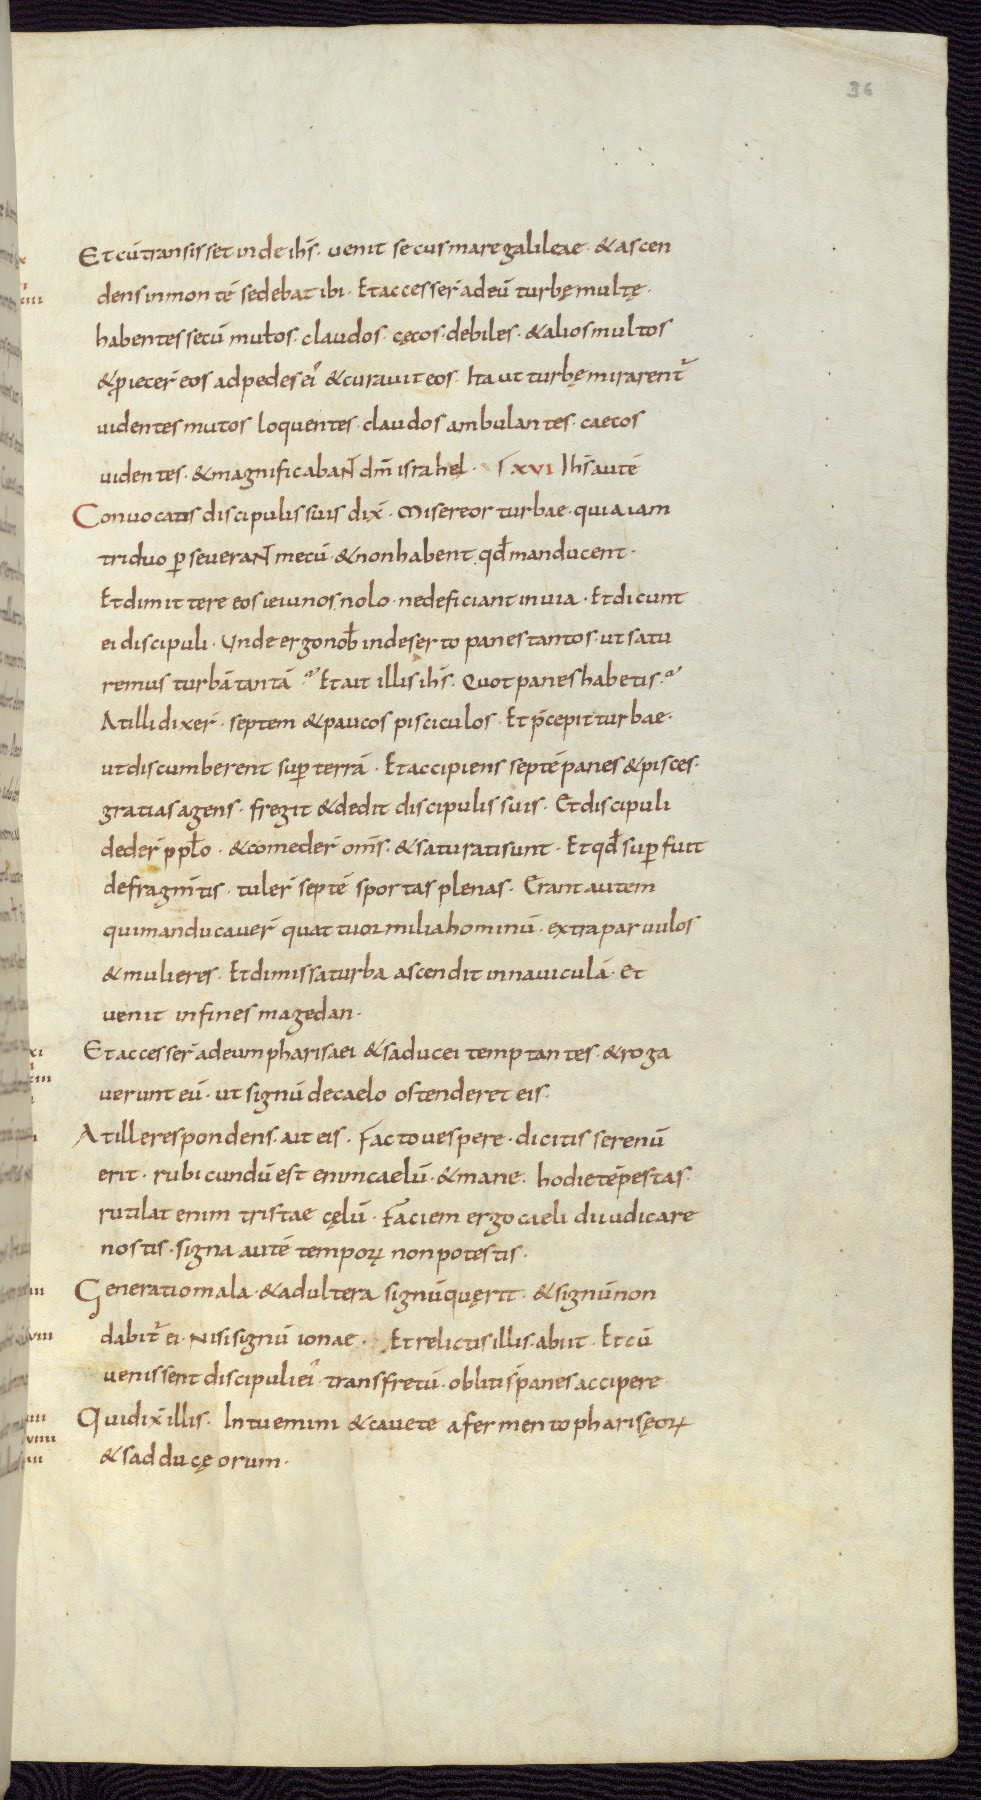 36
Et cū transisset inde ihs̄. uenit secus mare galileae. & ascen
dens in montē sedebat ibi. Et accesser̄ ad eū turbę multę.
habentes secū mutos. claudos. cęcos. debiles. & alios multos
& ꝓiecer̄ eos ad pedes ei᾽ & curauit eos. Ita ut turbę mirarent᾽
uidentes mutos loquentes. claudos ambulantes. caecos
uidentes. & magnificabaN̄ dm̄ israhel. XVI Ihs̄ autē
Conuocatis discipulis suis dix̄. Misereor turbae. quia iam
triduo ꝑseueraN̄ mecū. & non habent qđ manducent.
Et dimittere eos ieiunos nolo. ne deficiant in uia. Et dicunt
ei discipuli. Unde ergo nob̄ in deserto panes tantos. ut satu
remus turbā tantā? Et ait illis ihs̄. Quot panes habetis?
At illi dixer̄. septem & paucos pisciculos. Et p̄cepit turbae.
ut discumberent suꝑ terrā. Et accipiens septē panes & pisces.
gratias agens. fregit & dedit discipulis suis. Et discipuli
deder̄ ppło. & comeder̄ om̄s. & saturati sunt. Et qđ suꝑfuit
de fragm̄tis. tuler̄ septē sportas plenas. Erant autem
qui manducauer̄ quattuor milia hominū. extra paruulos
& mulieres. Et dimissa turba ascendit in nauiculā. et
uenit in fines magedan.
Et accesser̄ ad eum pharisaei & saducei temptantes. & roga
uerunt eū. ut signū de caelo ostenderet eis.
At ille respondens. ait eis. Facto uespere. dicitis serenū
erit. rubicundū est enim caelū. & mane. hodie tēpestas.
rutilat enim tristae cęlū. Faciem ergo caeli diiudicare
nostis. signa autē temporꝝ non potestis.
Generatio mala. & adultera signū quęrit. & signū non
dabit᾽ ei. nisi signū ionae. Et relictis illis. abiit. Et cū
uenissent discipuli ei᾽ trans fretū. obliti s̄ panes accipere.
Qui dix̄ illis. Intuemini & cauete a fermento pharisęorꝝ
& sadducęorum.